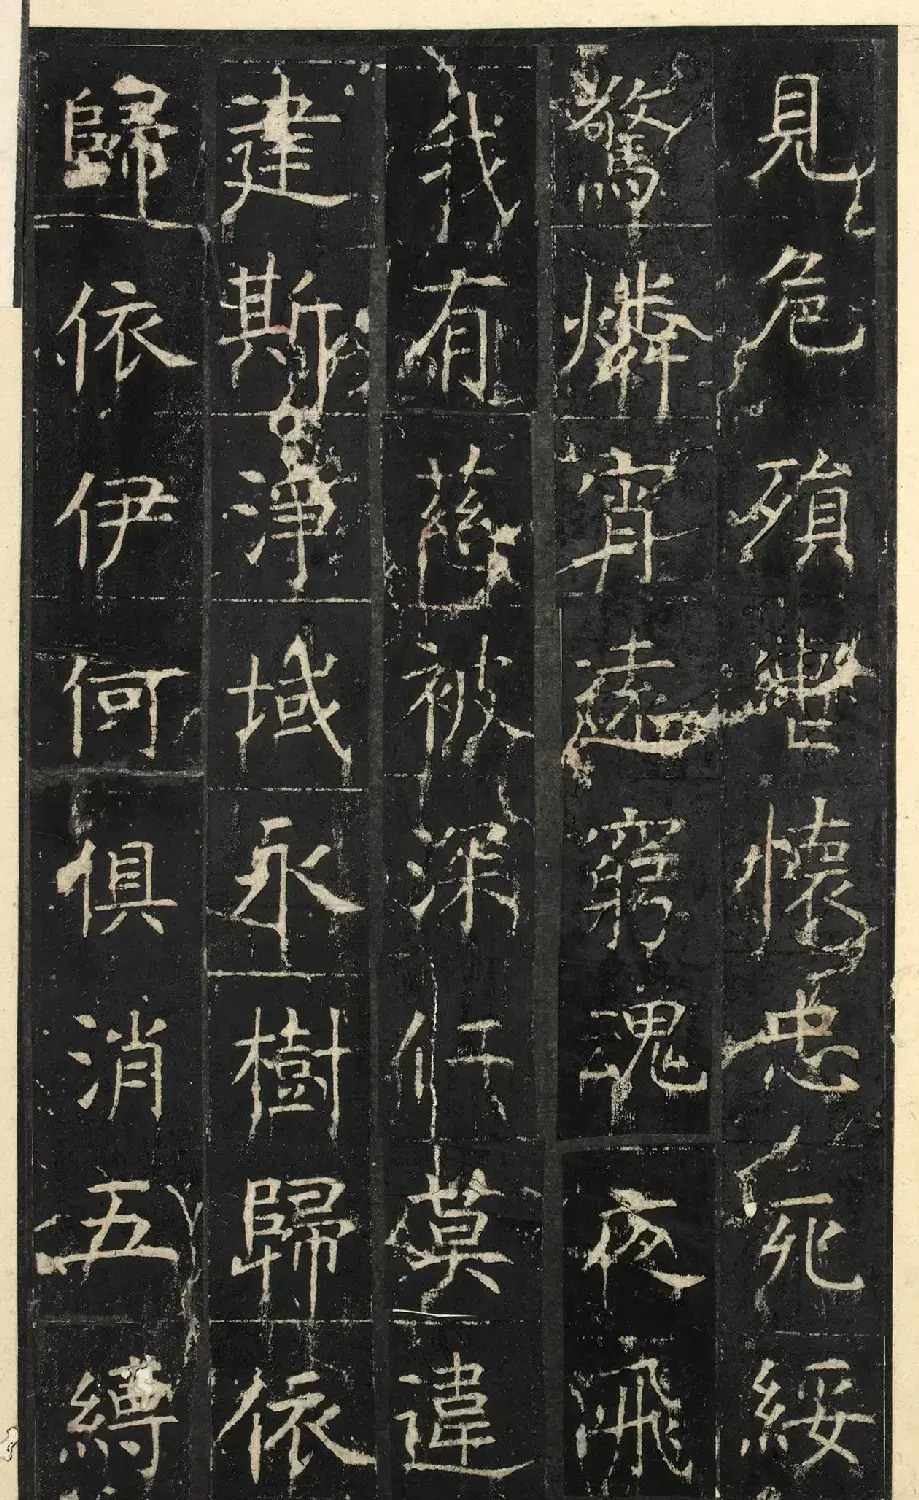 見危殞轡懷忠死綏
驚燐宵遠窮魂夜飛
我有慈被深仁莫違
建斯淨域永樹歸依
歸依伊何俱消五縛